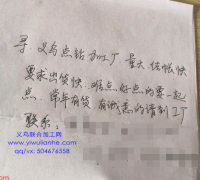 寻 义乌点钻加工厂 量大 结帐快
要求出货快、难点 好点的要一起
点. 常年有货 有诚意的请到工厂
联系:
义乌联合加工网
www.yiwulianhe.com
qq/vx: 504676558